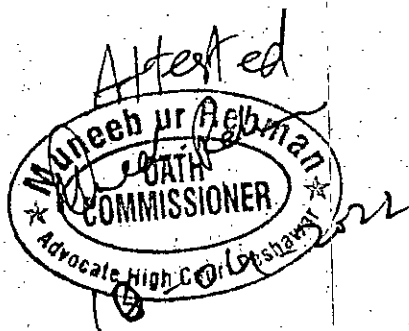 Attested
Muneeb ur Rehman
OATH
COMMISSIONER
Advocate High Court Peshawar
2022